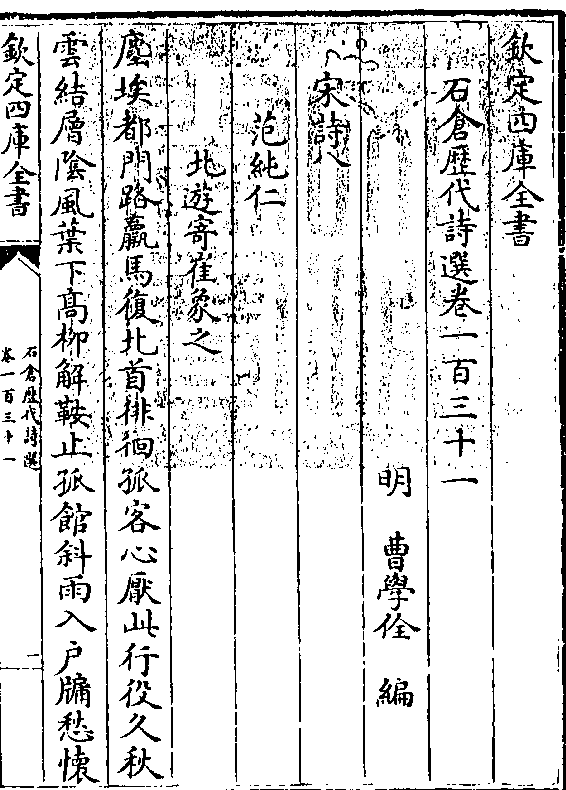 欽定四庫全書
石倉歷代詩選卷一百三十一
明 曹學佺 編
宋詩
范純仁
北遊寄崔象之
塵埃都門路羸馬復北首徘徊孤客心厭此行役久秋
雲結層陰風葉下高柳解鞍止孤館斜雨入戶牖愁懷
欽定四庫全書
石倉歷代詩選
卷一百三十一
一